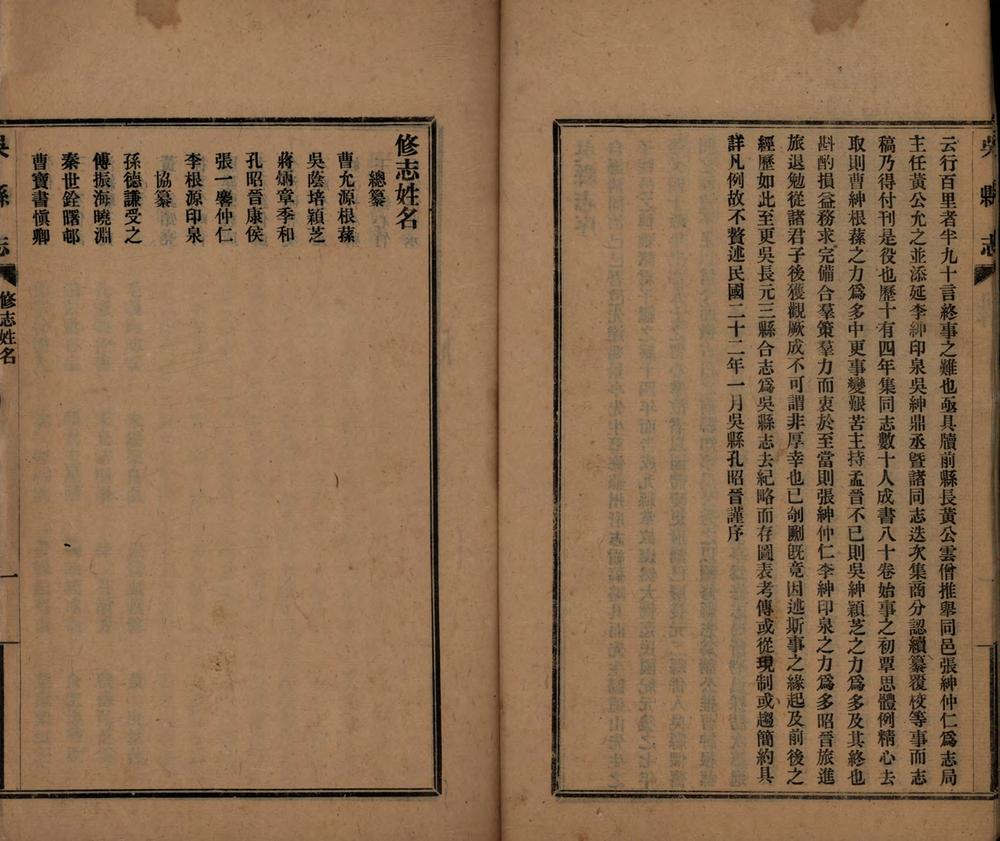 吳縣志
云行百里者半九十言終事之難也亟具牘前縣長黃公雲僧推舉同邑張紳仲仁爲志局
主任黃公允之並添延李紳印泉吳紳鼎丞暨諸同志迭次集商分認續纂覆校等事而志
稿乃得付刊是役也歷十有四年集同志數十人成書八十卷始事之初覃思體例精心去
取則曹紳根蓀之力爲多中更事變艱苦主持孟晉不已則吳紳穎芝之力爲多及其終也
斟酌損益務求完備合羣策羣力而衷於至當則張紳仲仁李紳印泉之力爲多昭晉旅進
旅退勉從諸君子後獲觀厥成不可謂非厚幸也已剞劂旣竟因述斯事之緣起及前後之
經歷如此至更吳長元三縣合志爲吳縣志去紀略而存圖表考傳或從現制或趨簡約具
詳凡例故不贅述民國二十二年一月吳縣孔昭晉謹序
修志姓名
總纂
曹允源根蓀
吳蔭培穎芝
蔣炳章季和
孔昭晉康侯
張一麐仲仁
李根源印泉
協纂
孫德謙受之
傅振海曉淵
秦世銓曙邨
曹寶書愼卿
吳縣志
修志姓名
一